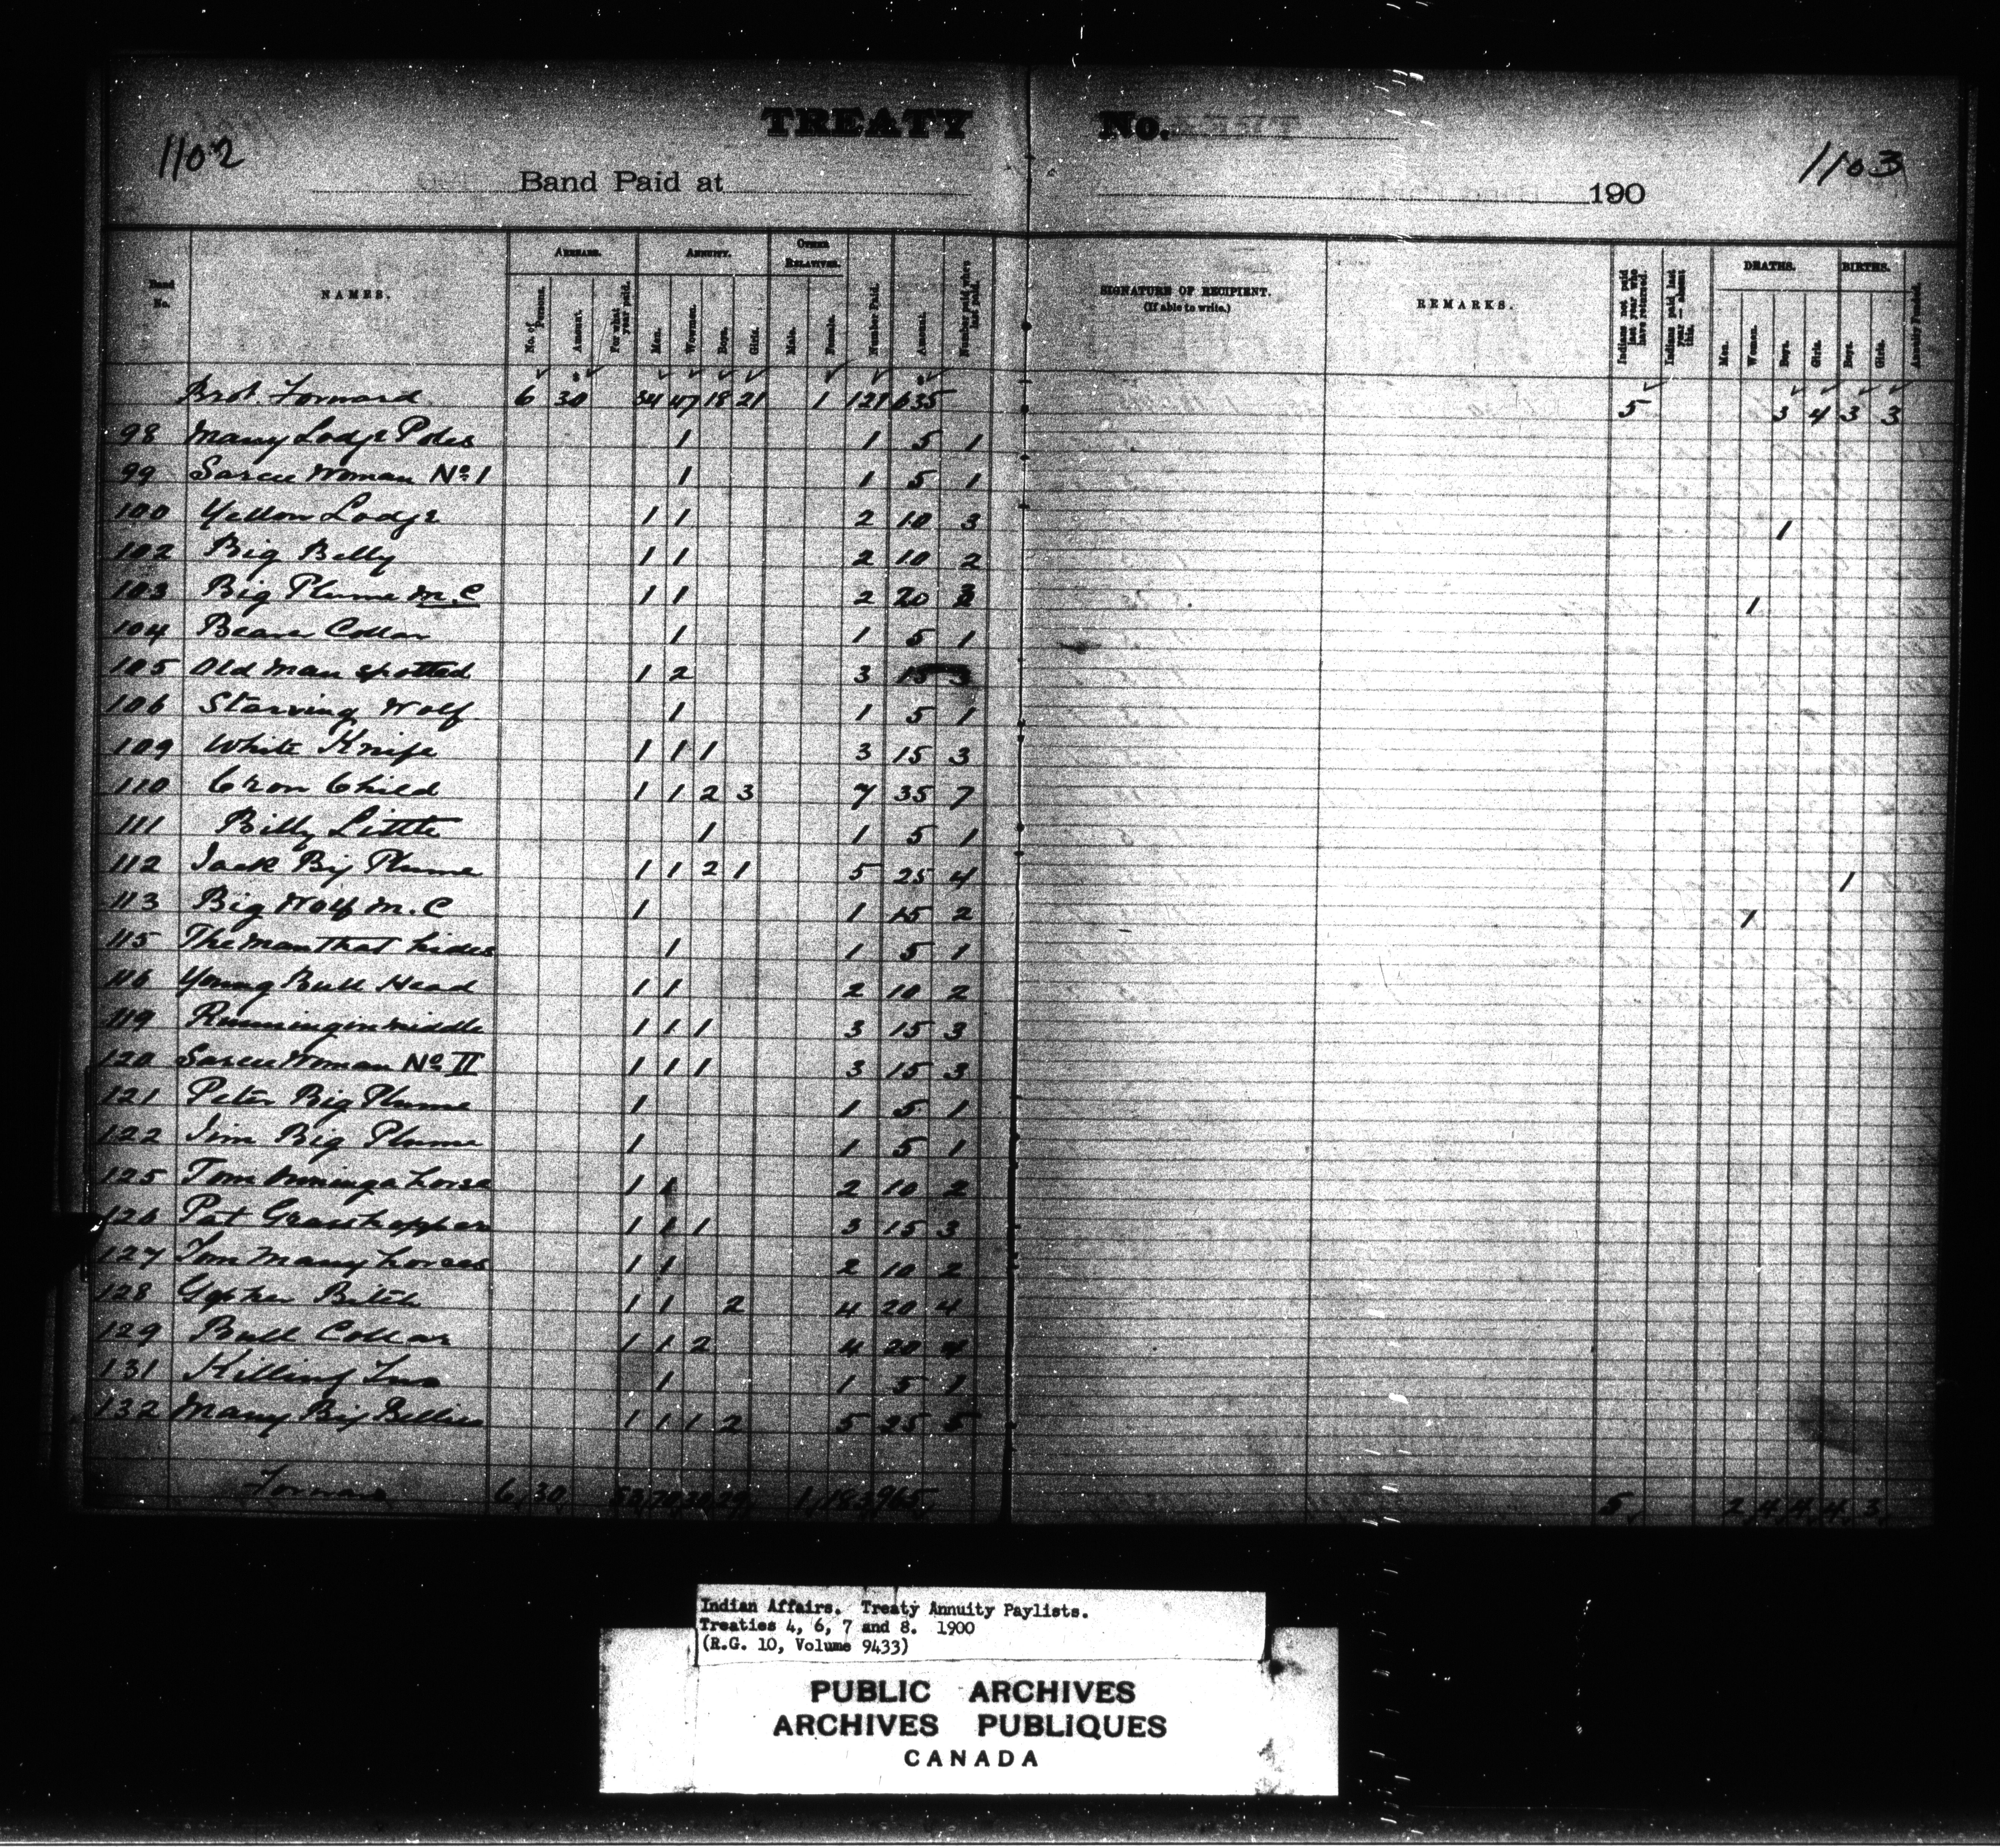 1102
TREATY No.
1103
Band Paid at 190
Band No. NAMES. ARREARS. ANNUITY. OTHER RELATIVES. Number Paid. Amount. Number paid when last paid. SIGNATURE OF RECIPIENT. (If able to write.) REMARKS. Indians not paid last year who have returned. Indians paid last year — absent this. DEATHS. BIRTHS. Annuity Funded.
No. of Persons. Amount. For what year paid. Men. Women. Boys. Girls. Male. Female. Men. Women. Boys. Girls. Boys. Girls.
Brot. Forward 6 30 34 47 18 21 1 121 635 5 3 4 3 3
98 Many Lodge Poles 1 1 5 1
99 Sarcee Woman No. 1 1 1 5 1
100 Yellow Lodge 1 1 2 10 3 1
102 Big Belly 1 1 2 10 2
103 Big Plume M.C 1 1 2 20 3 1
104 Bears Collar 1 1 5 1
105 Old Man Spotted 1 2 3 15 3
106 Starving Wolf 1 1 5 1
109 White Knife 1 1 1 3 15 3
110 Crow Child 1 1 2 3 7 35 7
111 Billy Little 1 1 5 1
112 Jack Big Plume 1 1 2 1 5 25 4 1
113 Big Wolf M.C 1 1 15 2 1
115 The Man that hides 1 1 5 1
116 Young Bull Head 1 1 2 10 2
119 Running in middle 1 1 1 3 15 3
120 Sarcee Woman No. II 1 1 1 3 15 3
121 Peter Big Plume 1 1 5 1
122 Jim Big Plume 1 1 5 1
125 Tom horse 1 1 2 10 2
126 Pat Grasshopper 1 1 1 3 15 3
127 Tom Many horses 1 1 2 10 2
128 Gopher Bitch 1 1 2 4 20 4
129 Bull Collar 1 1 2 4 20 4
131 Killing Two 1 1 5 1
132 Many Big Bellies 1 1 1 2 5 25 5
Forward 6 30 70 29 1 183 965 5 2 4 4 4 3
Indian Affairs. Treaty Annuity Paylists.
Treaties 4, 6, 7 and 8. 1900
(R.G. 10, Volume 9433)
PUBLIC ARCHIVES
ARCHIVES PUBLIQUES
CANADA